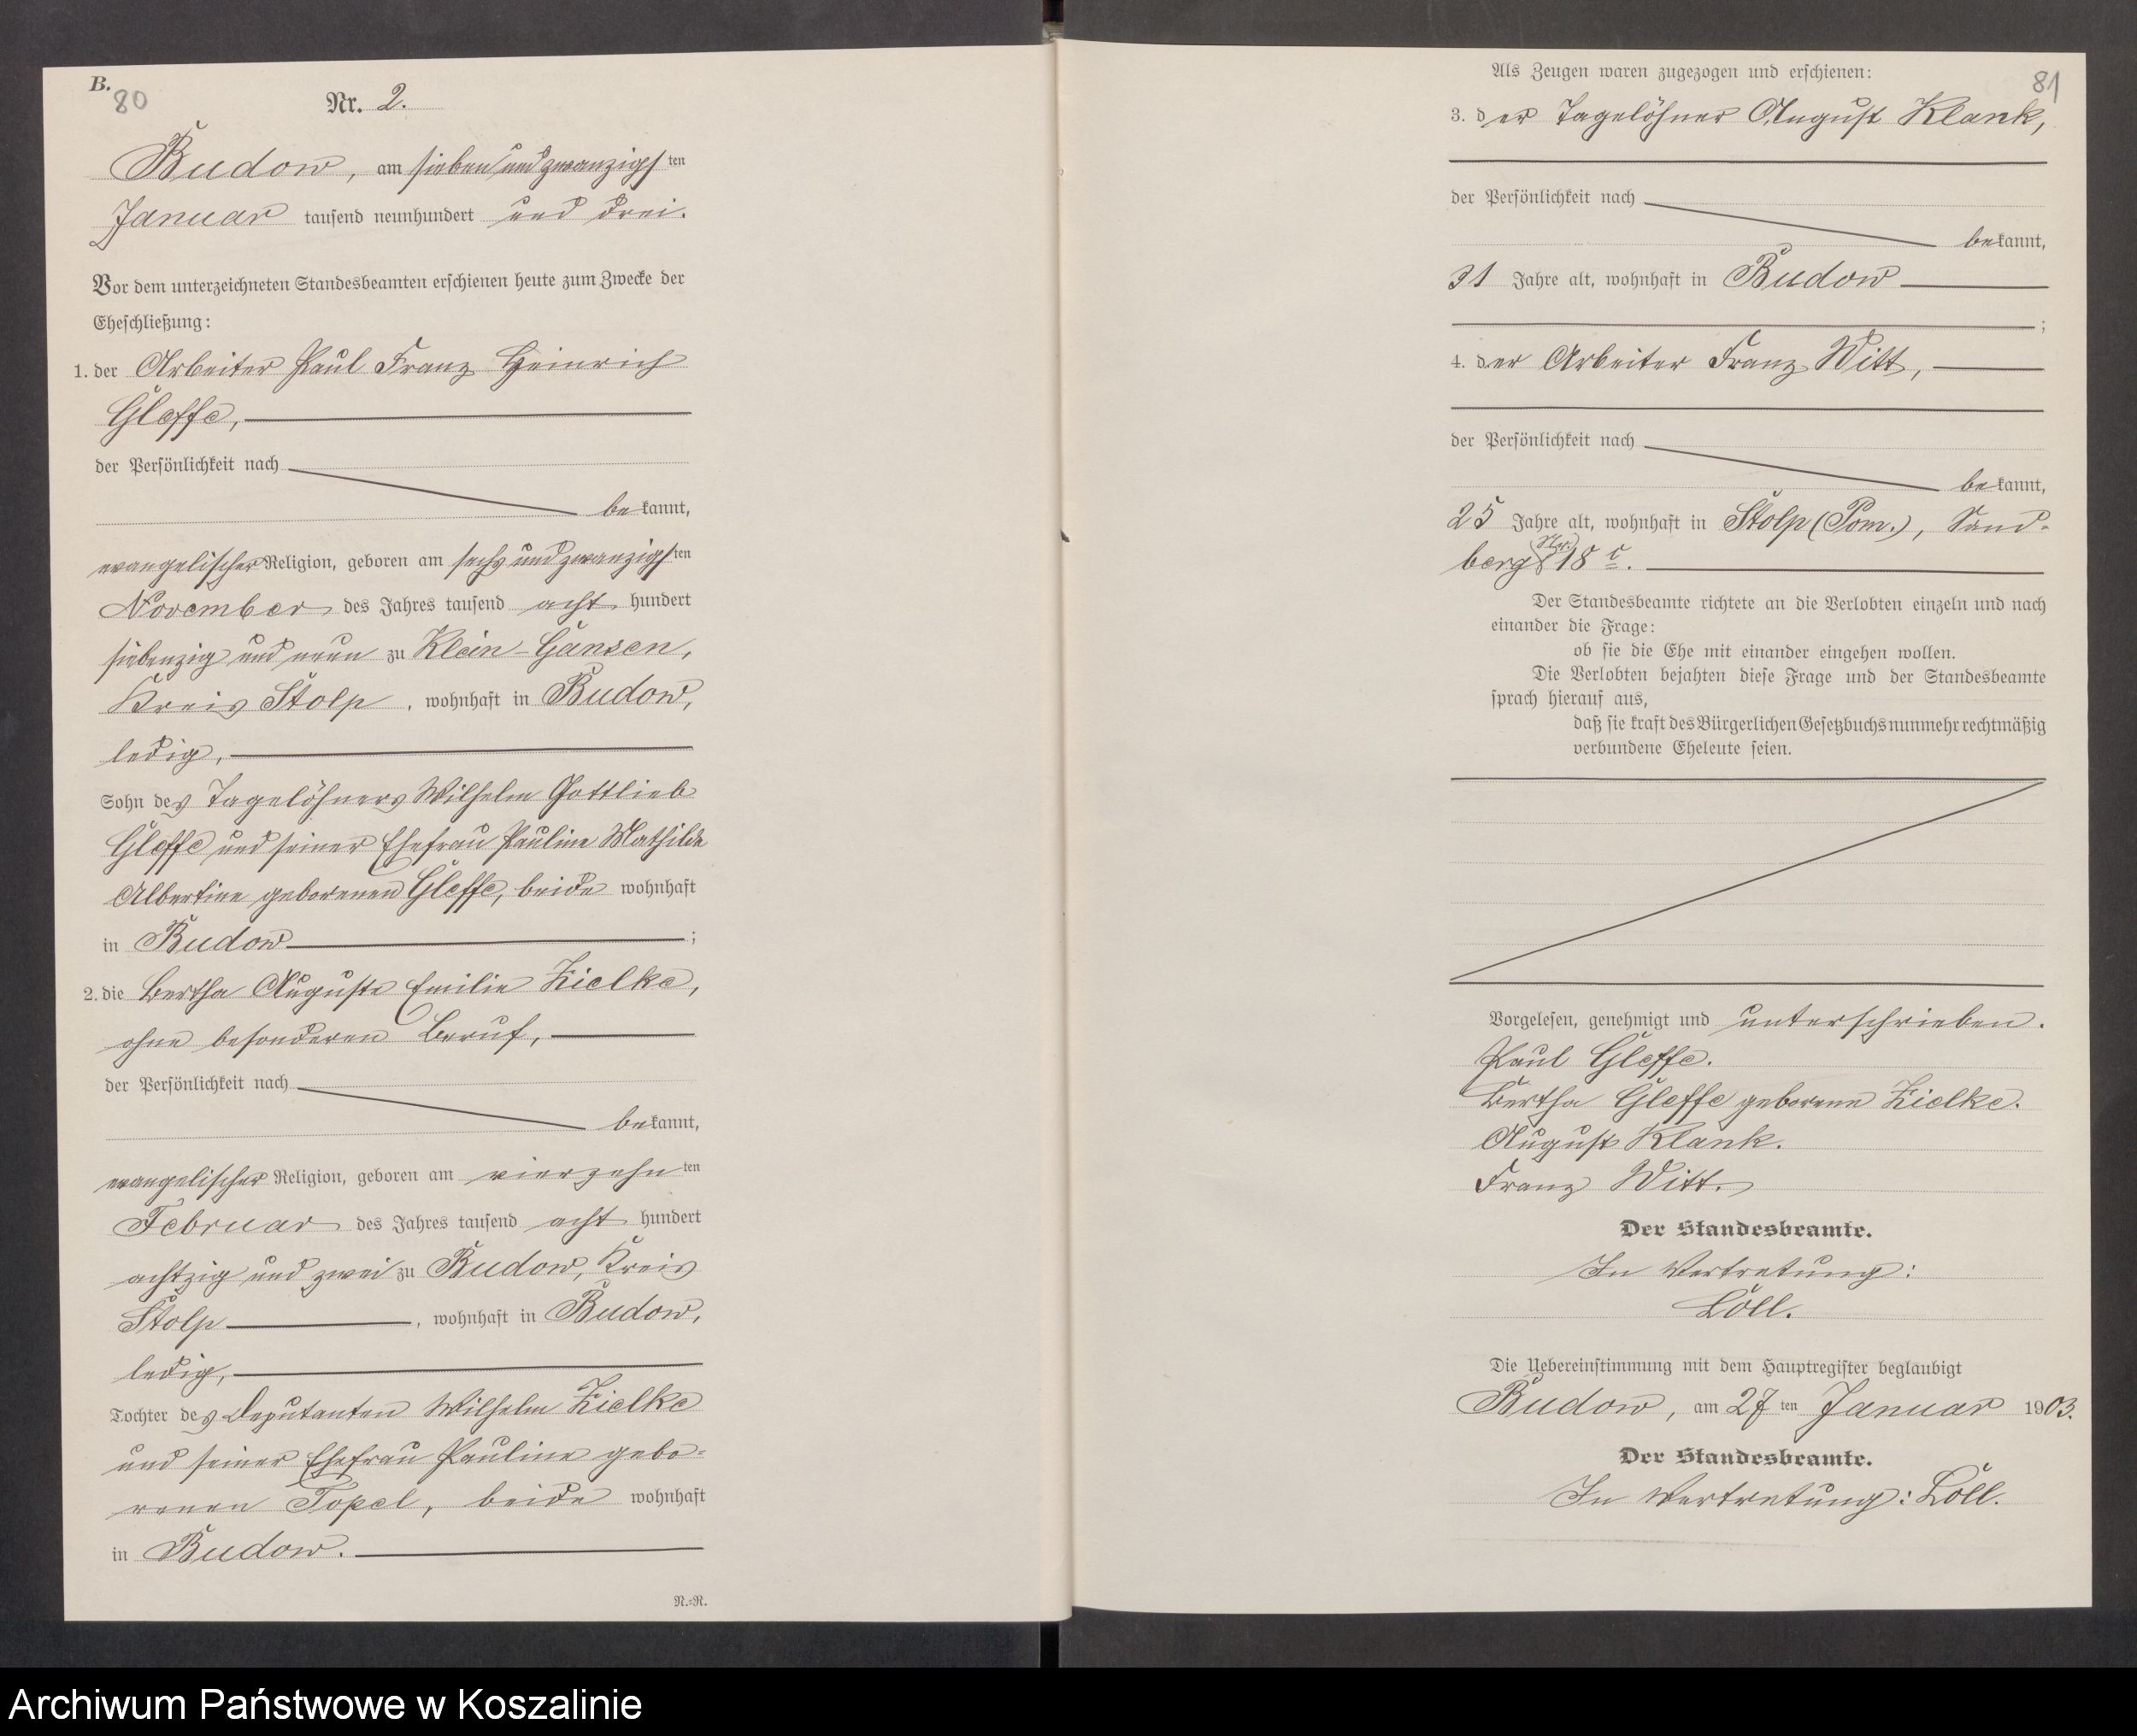 B.
80
Nr. 2.
Budow, am sieben und zwanzigsten
Januar tausend neunhundert und drei.
Vor dem unterzeichneten Standesbeamten erschienen heute zum Zwecke der
Eheschließung:
1. der Arbeiter Paul Franz Heinrich
Gleffe,
der Persönlichkeit nach
bekannt,
evangelischer Religion, geboren am sechs und zwanzigsten
November des Jahres tausend acht hundert
siebenzig und neun zu Klein-Gansen,
Kreis Stolp, wohnhaft in Budow,
ledig,
Sohn des Tagelöhners Wilhelm Gottlieb
Gleffe und seiner Ehefrau Pauline Mathilde
Albertine geborenen Gleffe, beide wohnhaft
in Budow;
2. die Bertha Auguste Emilie Zielke,
ohne besonderen Beruf,
der Persönlichkeit nach
bekannt,
evangelischer Religion, geboren am vierzehnten
Februar des Jahres tausend acht hundert
achtzig und zwei zu Budow, Kreis
Stolp, wohnhaft in Budow,
ledig,
Tochter des Deputanten Wilhelm Zielke
und seiner Ehefrau Pauline gebo-
renen Topel, beide wohnhaft
in Budow.
N.-R.
81
Als Zeugen waren zugezogen und erschienen:
3. der Tagelöhner August Klank,
der Persönlichkeit nach
bekannt,
31 Jahre alt, wohnhaft in Budow
;
4. der Arbeiter Franz Witt,
der Persönlichkeit nach
bekannt,
25 Jahre alt, wohnhaft in Stolp (Pom.), Sand-
berg Nr. 18 c.
Der Standesbeamte richtete an die Verlobten einzeln und nach
einander die Frage:
ob sie die Ehe mit einander eingehen wollen.
Die Verlobten bejahten diese Frage und der Standesbeamte
sprach hierauf aus,
daß sie kraft des Bürgerlichen Gesetzbuchs nunmehr rechtmäßig
verbundene Eheleute seien.
Vorgelesen, genehmigt und unterschrieben.
Paul Gleffe.
Bertha Gleffe geborene Zielke.
August Klank.
Franz Witt.
Der Standesbeamte.
In Vertretung:
Löll.
Die Uebereinstimmung mit dem Hauptregister beglaubigt
Budow, am 27ten Januar 1903.
Der Standesbeamte.
In Vertretung: Löll.
Archiwum Państwowe w Koszalinie